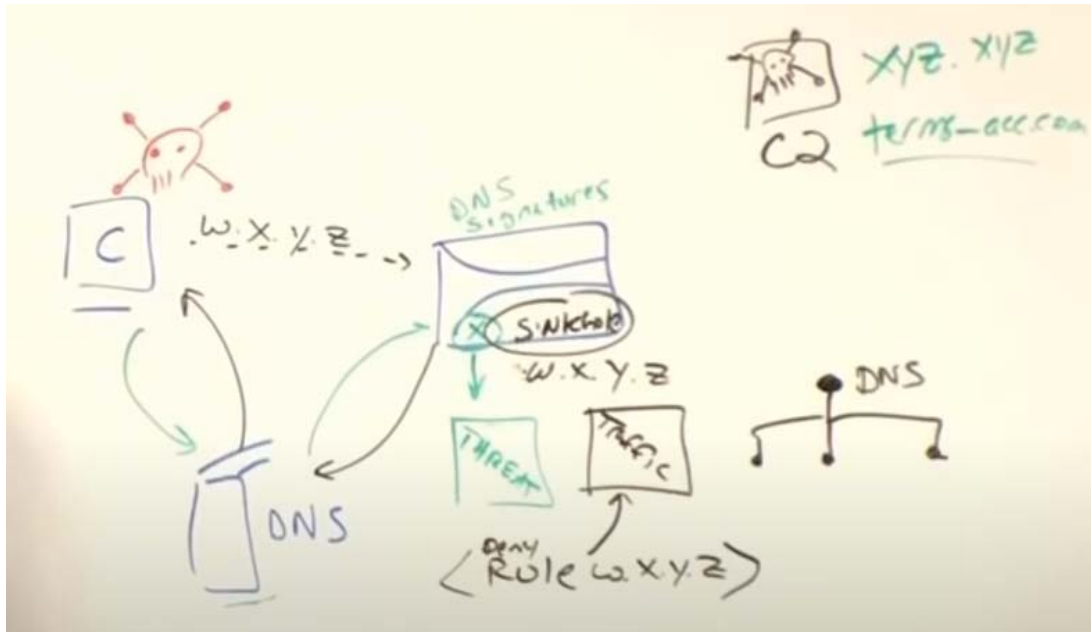 XYZ.XYZ
C2
terms-acc.com
DNS
Signatures
C
W.X.Y.Z
X
Sinkhole
W.X.Y.Z
DNS
THREAT
TRAFFIC
DNS
Deny
Rule W.X.Y.Z